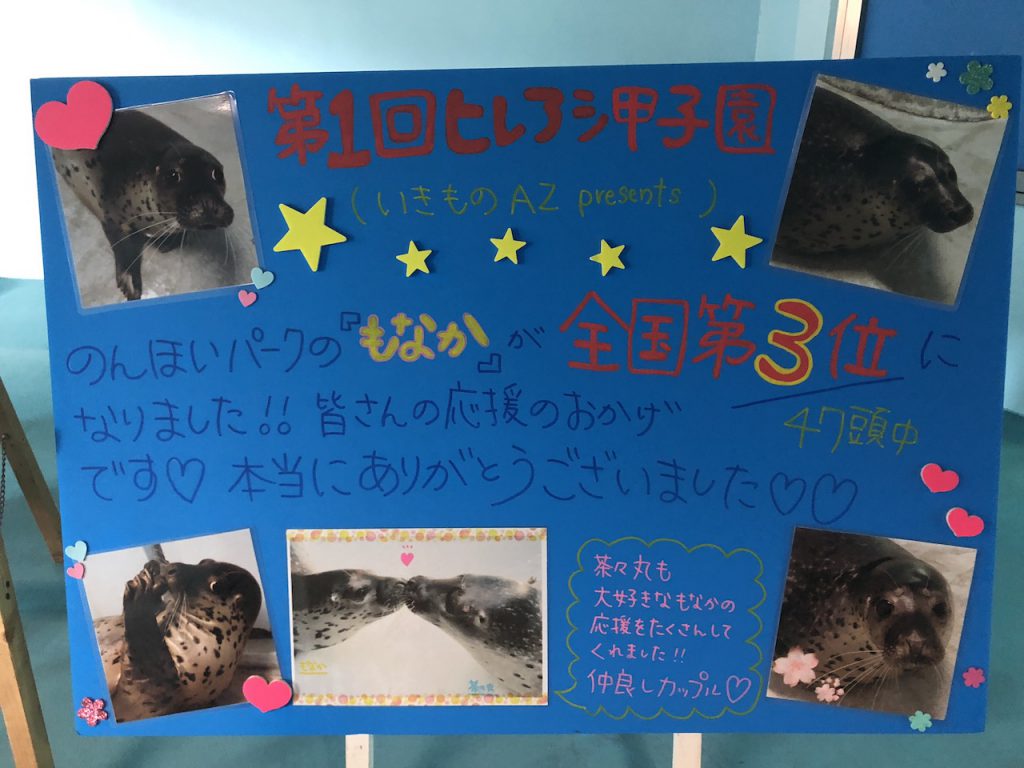 第1回ヒレアシ甲子園
(いきものAZ presents )
のんほいパークの『もなか』が 全国第3位に
なりました!! 皆さんの応援のおかげ
47頭中
です♡ 本当にありがとうございました♡♡
茶々丸も
大好きなもなかの
応援をたくさんして
くれました!!
仲良しカップル♡
もなか
茶々丸